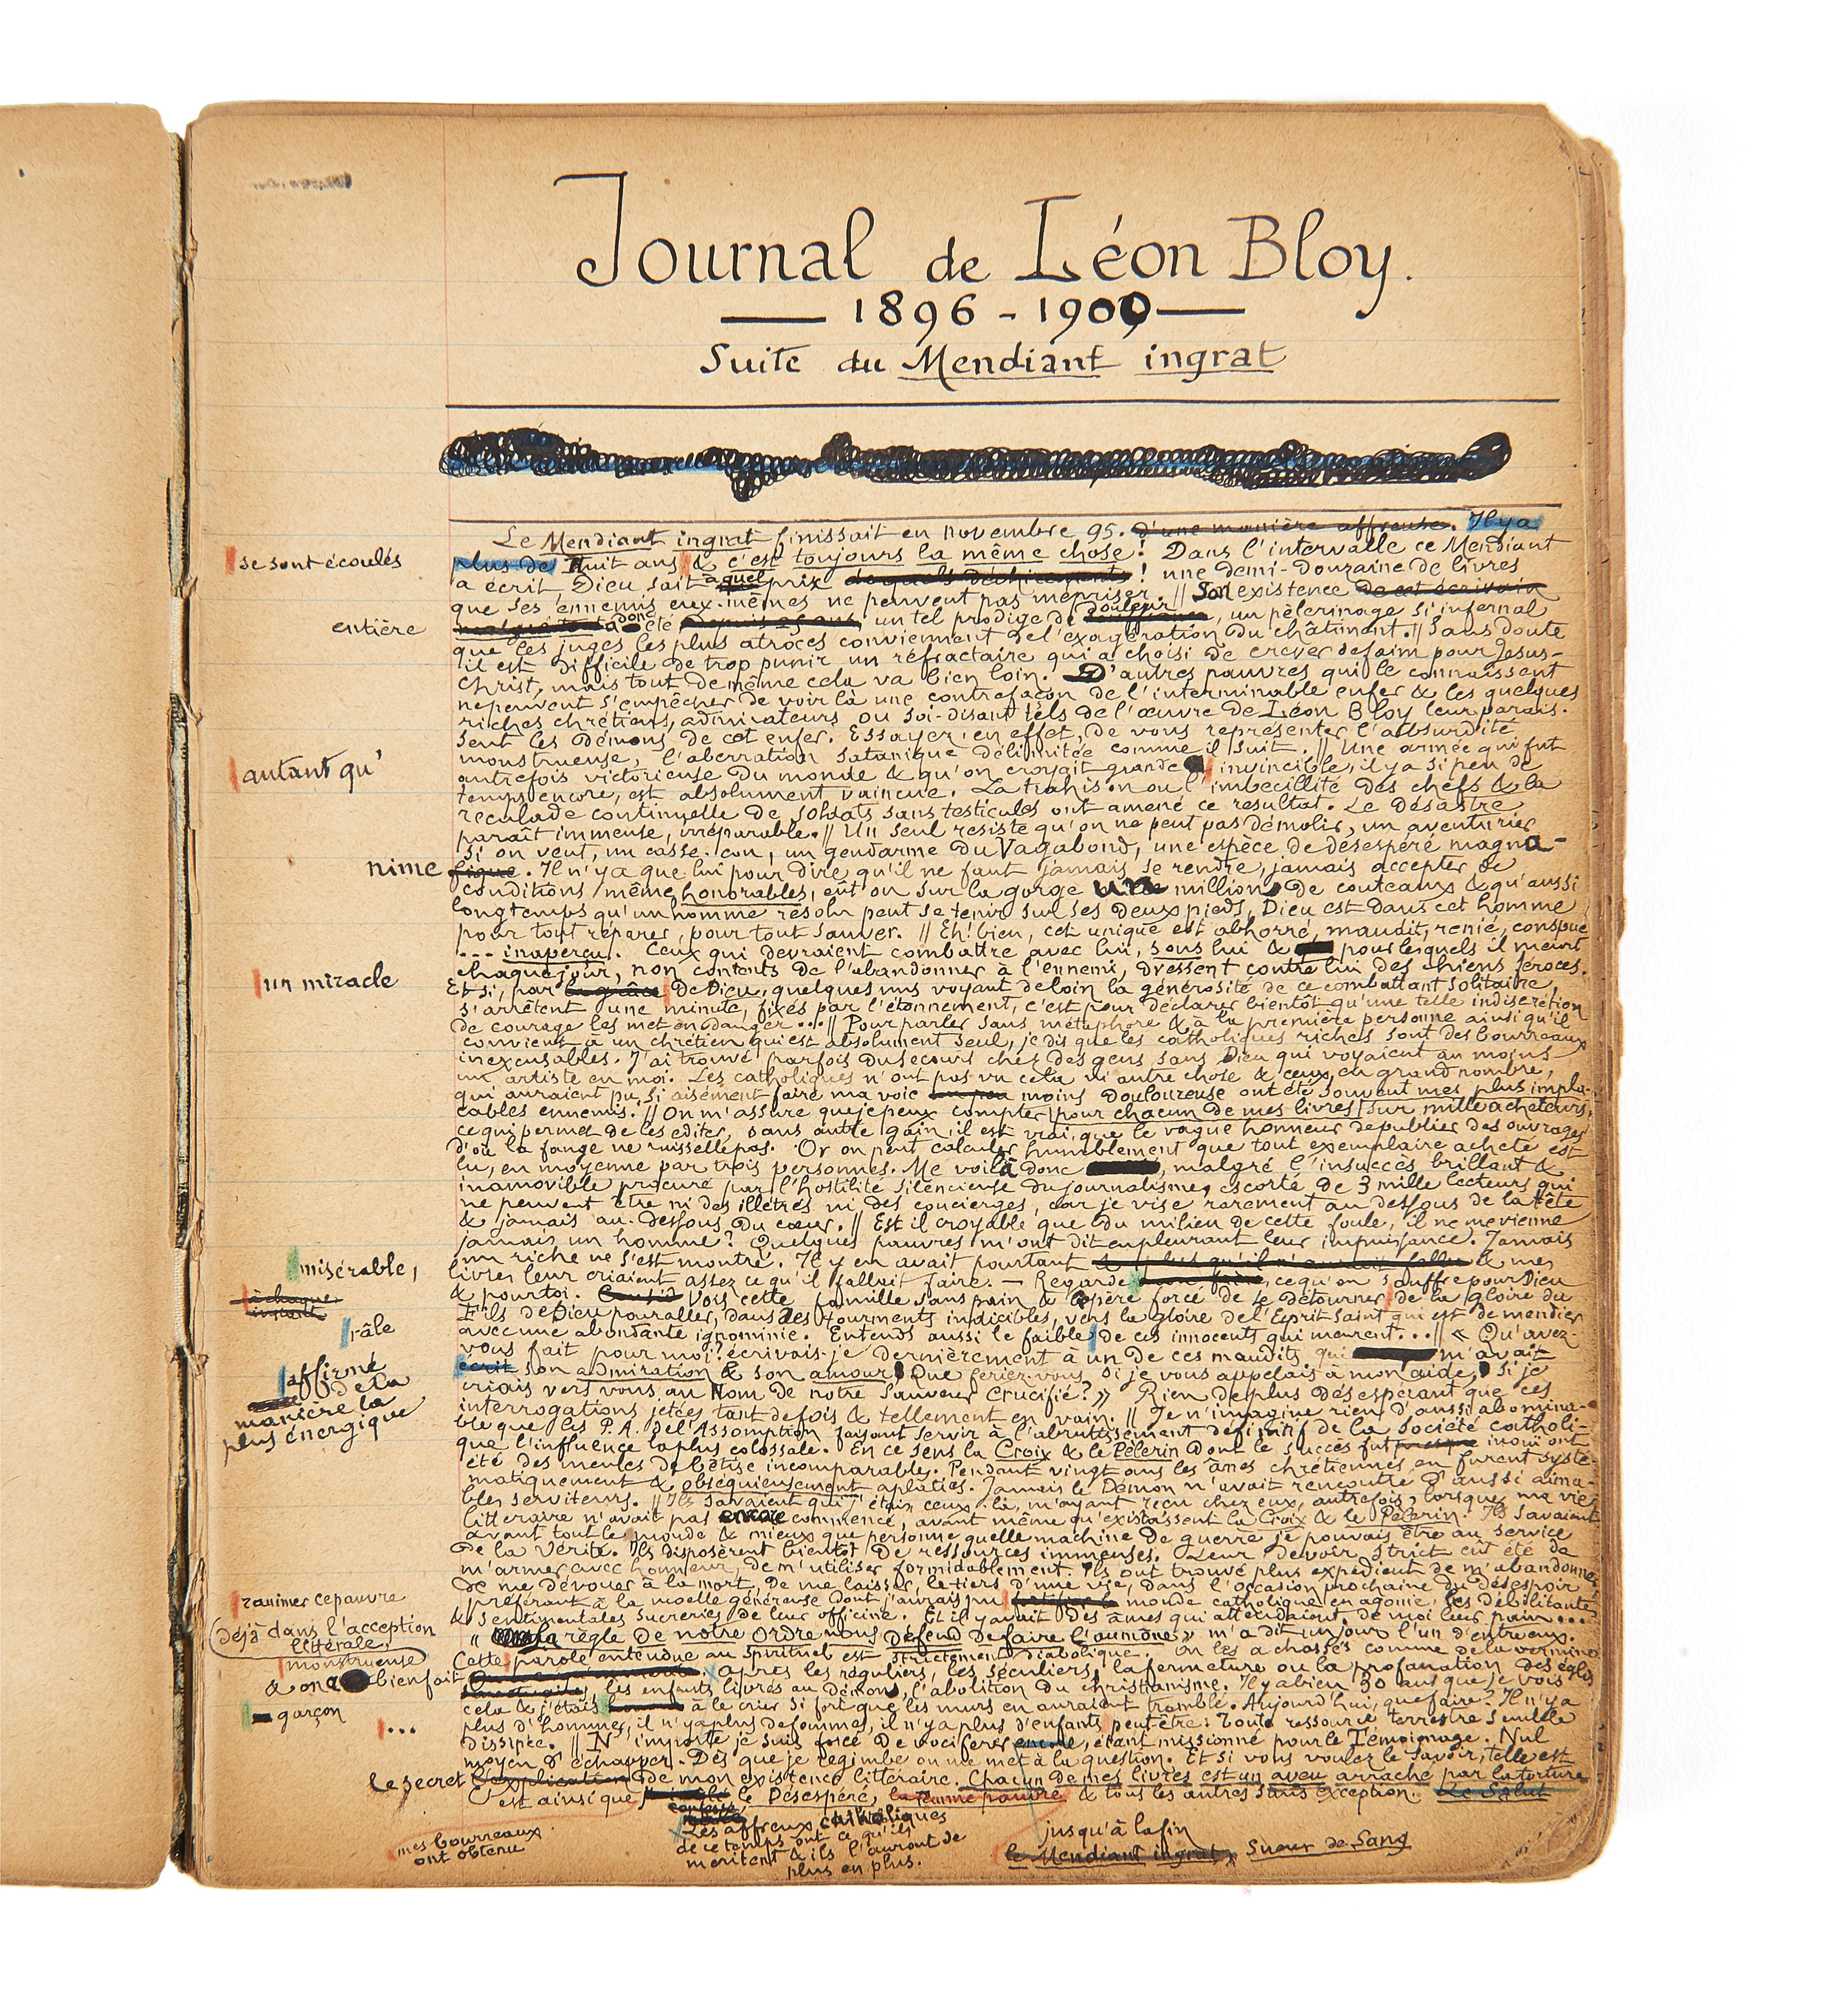 Journal de Léon Bloy.
1896 - 1900
Suite du Mendiant ingrat
Le Mendiant ingrat finissait en novembre 95. d'une manière affreuse. Il y a
se sont écoulés
plus de huit ans & c'est toujours la même chose! Dans l'intervalle ce Mendiant
a écrit, Dieu sait à quel prix de quels déchirements! une demi-douzaine de livres
que ses ennemis eux-mêmes ne peuvent pas mépriser. // Son existence de cet écrivain
entière
malgré tout a donc été depuis 25 ans, un tel prodige de douleur, un pèlerinage si infernal
que les juges les plus atroces conviennent de l'exagération du châtiment. // Sans doute
il est difficile de trop punir un réfractaire qui a choisi de crever de faim pour Jésus-
Christ, mais tout de même cela va bien loin. D'autres pauvres qui le connaissent
ne peuvent s'empêcher de voir là une contrefaçon de l'interminable enfer & les quelques
riches chrétiens, admirateurs ou soi-disant tels de l'œuvre de Léon Bloy leur parais-
sent les démons de cet enfer. Essayer, en effet, de vous représenter l'absurdité
monstrueuse, l'aberration satanique délimitée comme il suit. // Une armée qui fut
autant qu'
autrefois victorieuse du monde & qu'on croyait grande invincible, il y a si peu de
temps encore, est absolument vaincue. La trahison ou l'imbécillité des chefs & la
reculade continuelle de soldats sans testicules ont amené ce résultat. Le désastre
paraît immense, irréparable. // Un seul résiste qu'on ne peut pas démolir, un aventurier
si on veut, un casse-cou, un gendarme du Vagabond, une espèce de désespéré magna-
nime
fique. Il n'y a que lui pour dire qu'il ne faut jamais se rendre, jamais accepter de
conditions même honorables, eût-on sur la gorge un million de couteaux & qu'aussi
longtemps qu'un homme résolu peut se tenir sur ses deux pieds, Dieu est dans cet homme
pour tout réparer, pour tout sauver. // Eh! bien, cet unique est abhorré, maudit, renié, conspué
... inaperçu. Ceux qui devraient combattre avec lui, sous lui & pour lesquels il meurt
chaque jour, non contents de l'abandonner à l'ennemi, dressent contre lui des chiens féroces.
un miracle
Et si, par la grâce de Dieu, quelques-uns voyant de loin la générosité de ce combattant solitaire,
s'arrêtent une minute, fixés par l'étonnement, c'est pour déclarer bientôt qu'une telle indiscrétion
de courage les met en danger... // Pour parler sans métaphore & à la première personne ainsi qu'il
convient à un chrétien qui est absolument seul, je dis que les catholiques riches sont des bourreaux
inexcusables. J'ai trouvé parfois du secours chez des gens sans Dieu qui voyaient au moins
un artiste en moi. Les catholiques n'ont pas vu cela ni autre chose & ceux, en grand nombre,
qui auraient pu si aisément faire ma voie un peu moins douloureuse ont été souvent mes plus impla-
cables ennemis. // On m'assure que je peux compter pour chacun de mes livres sur mille acheteurs,
ce qui permet de les éditer, sans autre gain, il est vrai, que le vague honneur de publier des ouvrages
d'où la fange ne ruisselle pas. Or on peut calculer humblement que tout exemplaire acheté est
lu, en moyenne par trois personnes. Me voilà donc, malgré l'insuccès brillant &
inamovible procuré par l'hostilité silencieuse du journalisme, escorté de 3 mille lecteurs qui
ne peuvent être ni des illétrés ni des concierges, car je vise rarement au dessous de la tête
& jamais au-dessous du cœur. // Est il croyable que du milieu de cette foule, il ne me vienne
jamais un homme? Quelques pauvres m'ont dit en pleurant leur impuissance. Jamais
un riche ne s'est montré. Il y en avait pourtant & plus qu'il n'en aurait fallu & mes
misérable,
livres leur criaient assez ce qu'il fallait faire. — Regarde mon frère, ce qu'on souffre pour Dieu
à chaque
instant
& pour toi. Vois cette famille sans pain & le père forcé de se détourner de la gloire du
Fils de Dieu pour aller, dans des tourments indicibles, vers la gloire de l'Esprit Saint qui est de mendier
râle
avec une abondante ignominie. Entends aussi le faible de ces innocents qui meurent... // « Qu'avez-
vous fait pour moi? écrivais-je dernièrement à un de ces maudits qui m'avait
affirmé
de la
manière la
plus énergique
écrit son admiration & son amour. Que feriez-vous si je vous appelais à mon aide, si je
criais vers vous au Nom de notre Sauveur crucifié? » Rien de plus désespérant que ces
interrogations jetées tant de fois & tellement en vain. // Je n'imagine rien d'aussi abomina-
ble que les P.A. de l'Assomption faisant servir à l'abrutissement définitif de la société catholi-
que l'influence la plus colossale. En ce sens la Croix & le Pèlerin dont le succès fut presque inouï ont
été des meules de bêtise incomparables. Pendant vingt ans les âmes chrétiennes en furent systé-
matiquement & obséquieusement aplaties. Jamais le Démon n'avait rencontré d'aussi aima-
bles serviteurs. // Ils savaient qui j'étais ceux-là, m'ayant reçu chez eux, autrefois, lorsque ma vie
littéraire n'avait pas encore commencé, avant même qu'existassent la Croix & le Pèlerin. Ils savaient
avant tout le monde & mieux que personne quelle machine de guerre je pouvais être au service
de la Vérité. Ils disposèrent bientôt de ressources immenses. Leur devoir strict eût été de
m'armer avec honneur, de m'utiliser formidablement. Ils ont trouvé plus expédient de m'abandonner
de me dévouer à la mort, de me laisser, le tiers d'une vie, dans l'occasion prochaine du désespoir
ranimer ce pauvre
préférant à la moëlle généreuse dont j'aurais pu fortifier le monde catholique en agonie, les débilitantes
& sentimentales sucreries de leur officine. Et il y avait des âmes qui attendaient de moi leur pain...
déjà dans l'acception
littérale,
« la règle de notre Ordre nous défend de faire l'aumône » m'a dit un jour l'un d'entre eux.
monstrueuse
Cette parole entendue au spirituel est strictement diabolique. On les a chassés comme de la vermine
& on a bien fait
après les réguliers, les séculiers, la fermeture ou la profanation des églises
les enfants livrés au démon, l'abolition du christianisme. Il y a bien 30 ans que je vois
garçon
cela & j'étais à le crier si fort que les murs en auraient tremblé. Aujourd'hui, que faire? Il n'y a
...
plus d'hommes, il n'y a plus de femmes, il n'y a plus d'enfants peut-être: toute ressource terrestre semble
dissipée. // N'importe je suis forcé de vociférer encore, étant missionné pour le Témoignage. Nul
moyen d'échapper. Dès que je regimbe on me met à la question. Et si vous voulez le savoir, telle est
le secret
l'explication de mon existence littéraire. Chacun de mes livres est un aveu arraché par la torture
C'est ainsi que le Désespéré, la Femme pauvre & tous les autres sans exception. Le Salut
mes bourreaux
ont obtenu
Les affreux catholiques
de ce temps ont ce qu'ils
méritent & ils l'auront de
plus en plus.
jusqu'à la fin
le Mendiant ingrat, Sueur de Sang